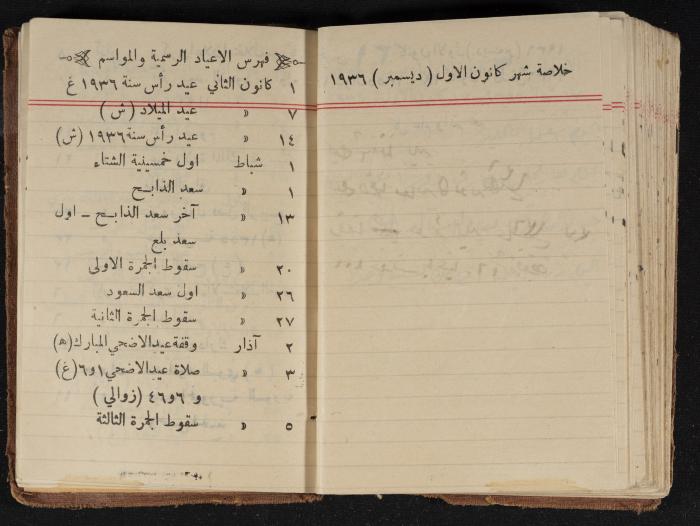 خلاصة شهر كانون الاول ( ديسمبر ) ١٩٣٦
فهرس الاعياد الرسمية والمواسم
١ كانون الثاني عيد رأس سنة ١٩٣٦ غ
٧ » عيد الميلاد ( ش )
١٤ » عيد رأس سنة ١٩٣٦ (ش)
١ شباط اول خمسينية الشتاء
١ » سعد الذابح
١٣ » آخر سعد الذابح – اول
سعد بلع
٢٠ » سقوط الجمرة الاولى
٢٦ » اول سعد السعود
٢٧ » سقوط الجمرة الثانية
٢ آذار وقفة عيد الاضحي المبارك (ه)
٣ » صلاة عيد الاضحي ١ و ٦ (غ)
و ٦ و ٤٦ ( زوالي )
٥ » سقوط الجمرة الثالثة